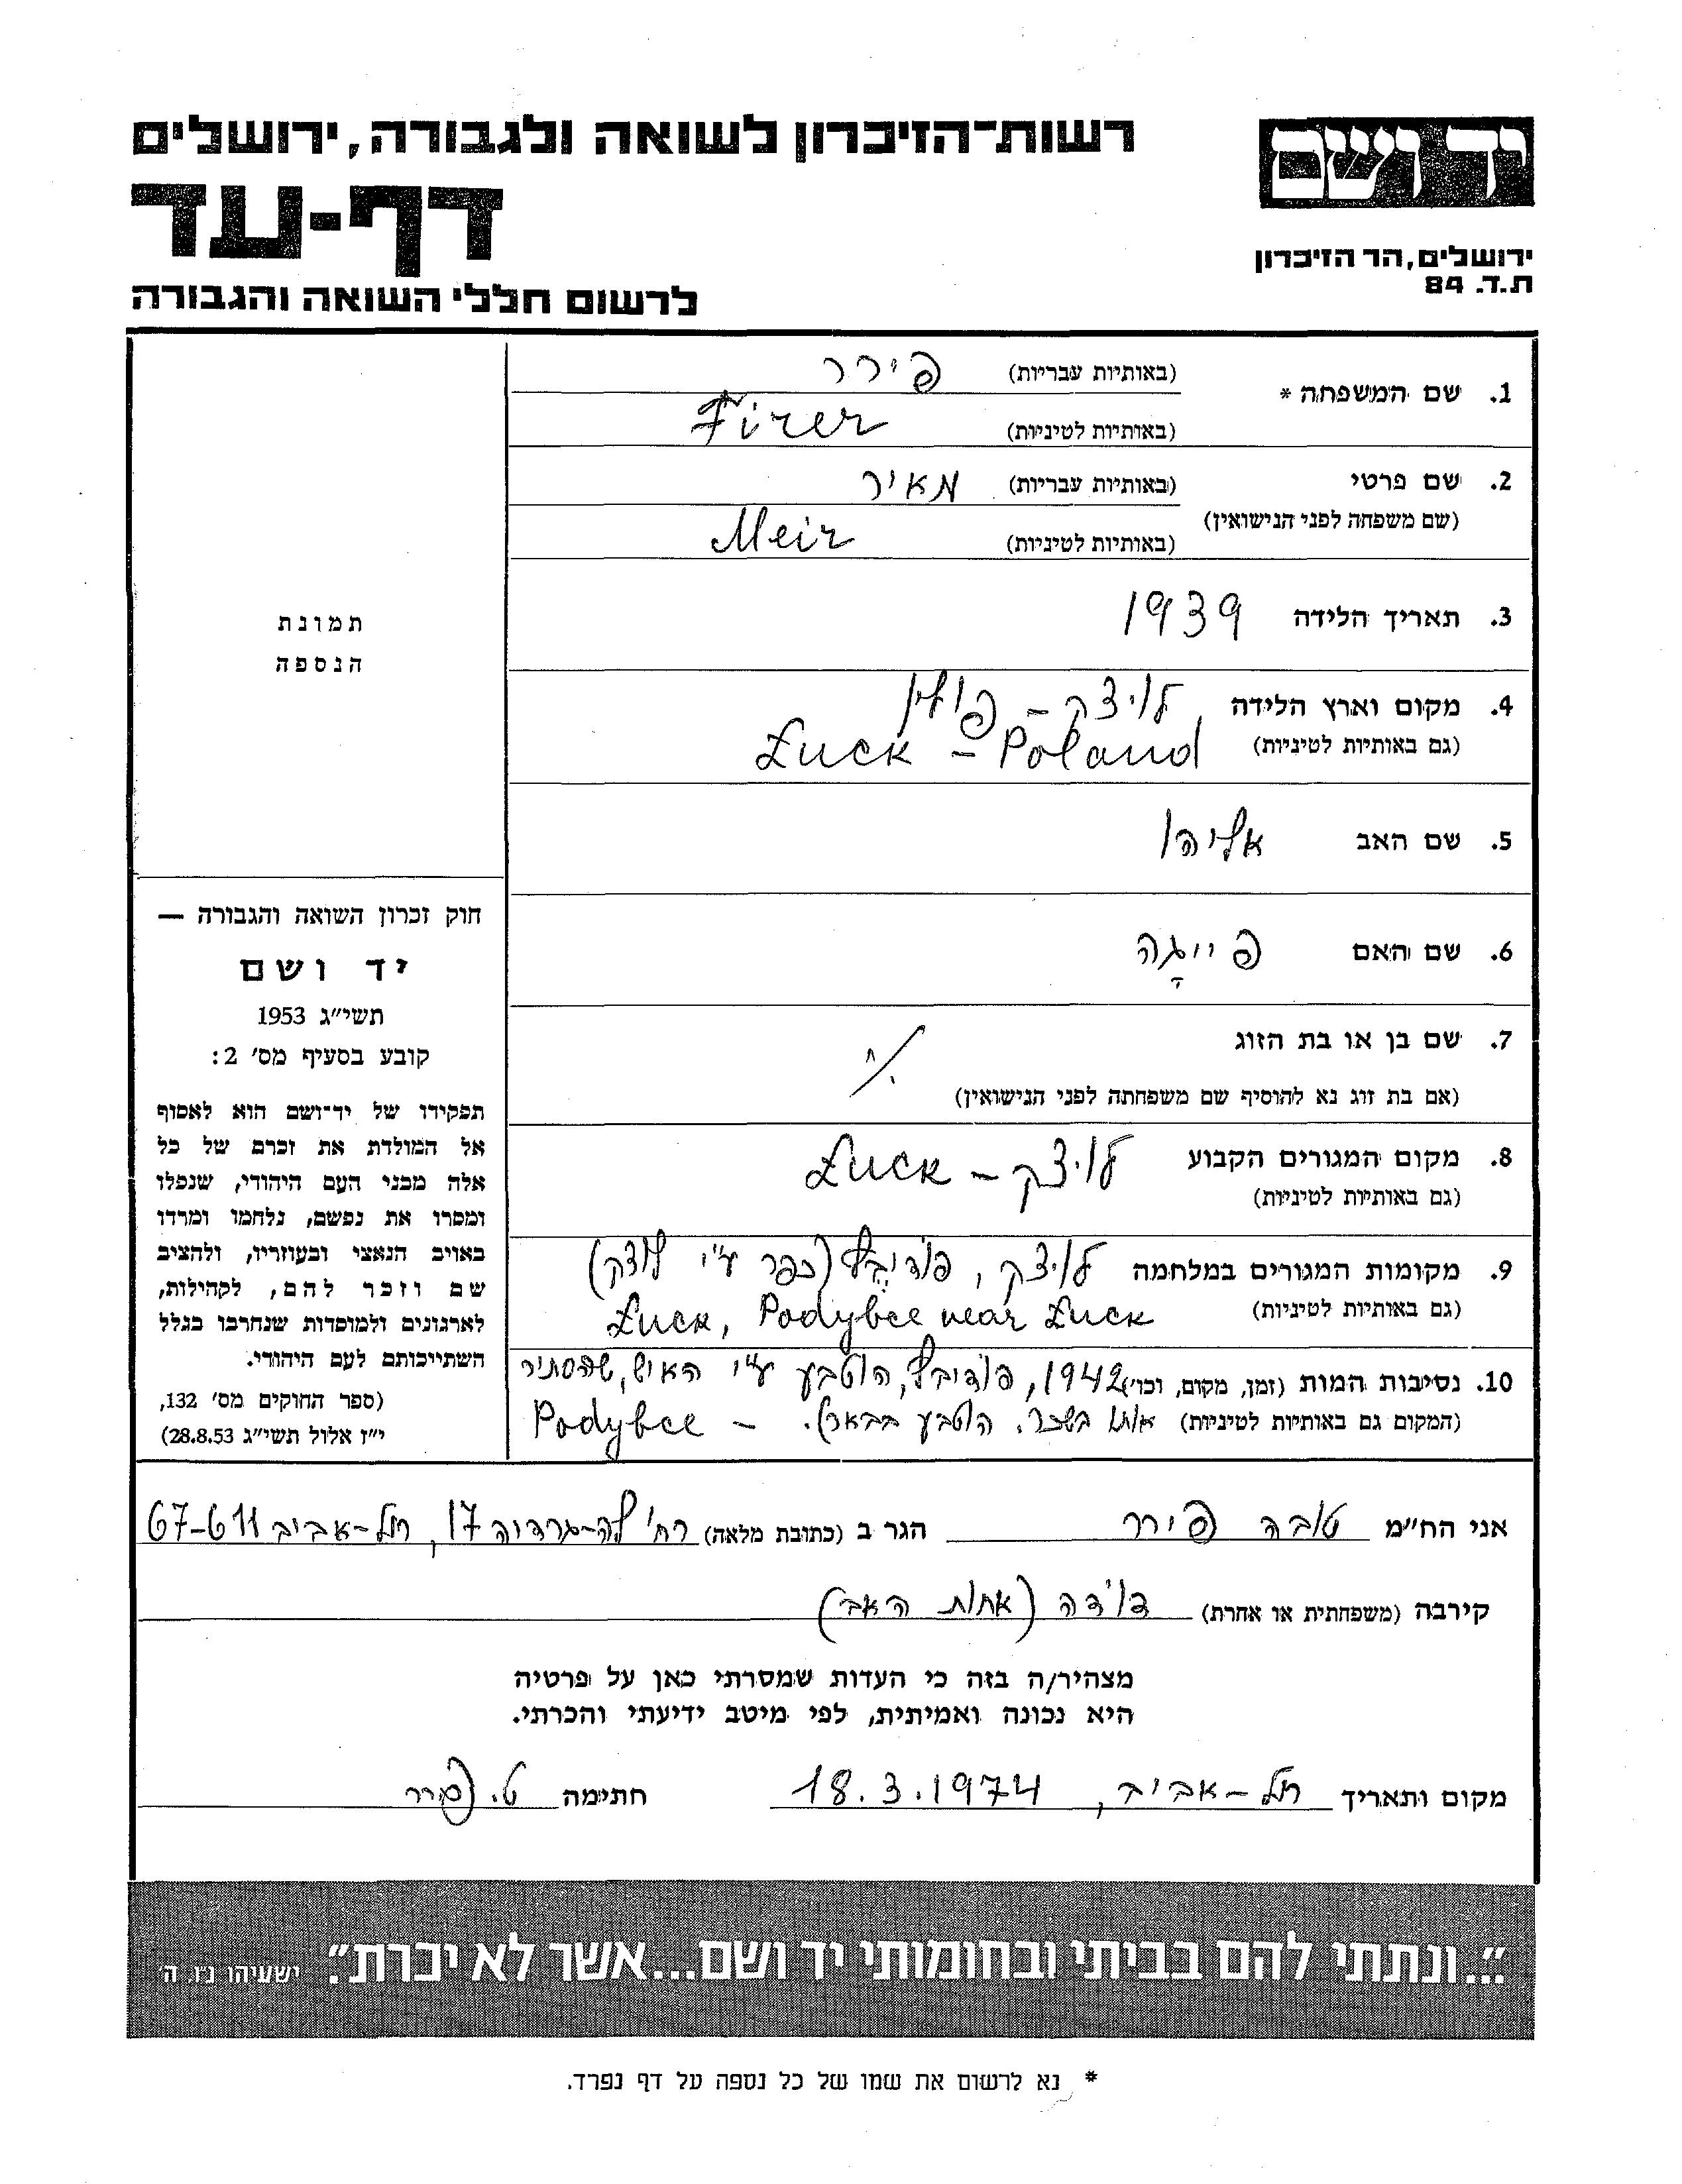 יד ושם
ירושלים, הר הזיכרון
ת.ד. 84
רשות־הזיכרון לשואה ולגבורה, ירושלים
דף-עד
לרשום חללי השואה והגבורה
1. שם המשפחה * (באותיות עבריות) פירר
(באותיות לטיניות) Firer
2. שם פרטי (באותיות עבריות) מאיר
(שם משפחה לפני הנישואין) (באותיות לטיניות) Meir
3. תאריך הלידה 1939
4. מקום וארץ הלידה לוצק - פולין
(גם באותיות לטיניות) Łuck - Poland
5. שם האב אליהו
6. שם האם פייגה
7. שם בן או בת הזוג
(אם בת זוג נא להוסיף שם משפחתה לפני הנישואין)
8. מקום המגורים הקבוע לוצק - Łuck
(גם באותיות לטיניות)
9. מקומות המגורים במלחמה לוצק, (כפר ע"י לוצק)
(גם באותיות לטיניות) Łuck, Podybce near Łuck
10. נסיבות המות (זמן, מקום, וכו') 1942, הוטבע ע"י האיש, שהסתיר
(המקום גם באותיות לטיניות) אותו בשכר. הוטבע בבאר. - Podybce
תמונת
הנספה
חוק זכרון השואה והגבורה —
יד ושם
תשי"ג 1953
קובע בסעיף מס' 2:
תפקידו של יד־ושם הוא לאסוף
אל המולדת את זכרם של כל
אלה מבני העם היהודי, שנפלו
ומסרו את נפשם, נלחמו ומרדו
באויב הנאצי ובעוזריו, ולהציב
שם וזכר להם, לקהילות,
לארגונים ולמוסדות שנחרבו בגלל
השתייכותם לעם היהודי.
(ספר החוקים מס' 132,
י"ז אלול תשי"ג 28.8.53)
אני הח"מ טובה פירר הגר ב (כתובת מלאה) רח' לה-גרדיה 17, תל-אביב 67-611
קירבה (משפחתית או אחרת) דודה (אחות האב)
מצהיר/ה בזה כי העדות שמסרתי כאן על פרטיה
היא נכונה ואמיתית, לפי מיטב ידיעתי והכרתי.
מקום ותאריך תל-אביב, 18.3.1974 חתימה ט. פירר
"...ונתתי להם בביתי ובחומותי יד ושם...אשר לא יכרת". ישעיהו נ"ו, ה'
* נא לרשום את שמו של כל נספה על דף נפרד.